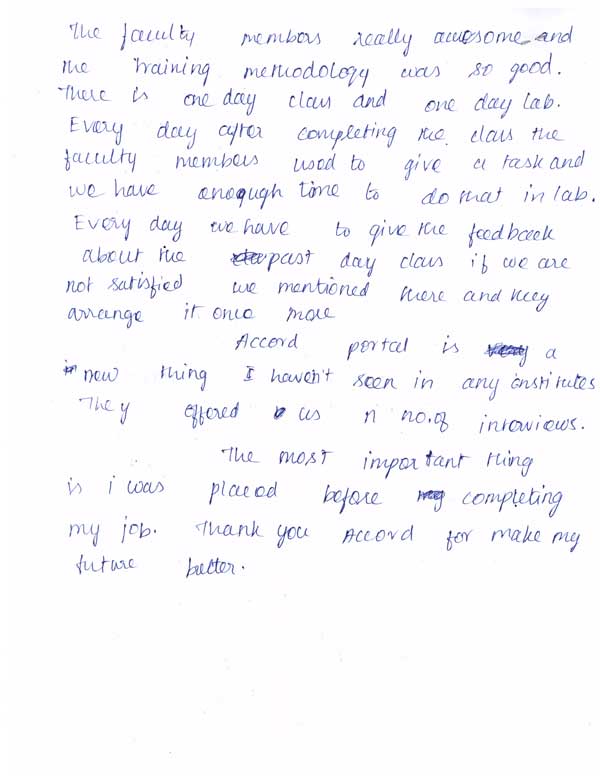 The faculty members really awesome and
the training methodology was so good.
There is one day class and one day lab.
Every day after completing the class the
faculty members used to give a task and
we have enough time to do that in lab.
Every day we have to give the feedback
about the past day class if we are
not satisfied we mentioned there and they
arrange it once more
Accord portal is a
new thing I haven't seen in any institutes
They offered us n no. of interviews.
The most important thing
is i was placed before completing
my job. Thank you Accord for make my
future better.